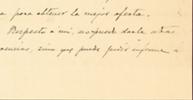 a para obtener la mejor oferta.
Respecto a mi, no puedo darle otra
sino que puede pedir informe a